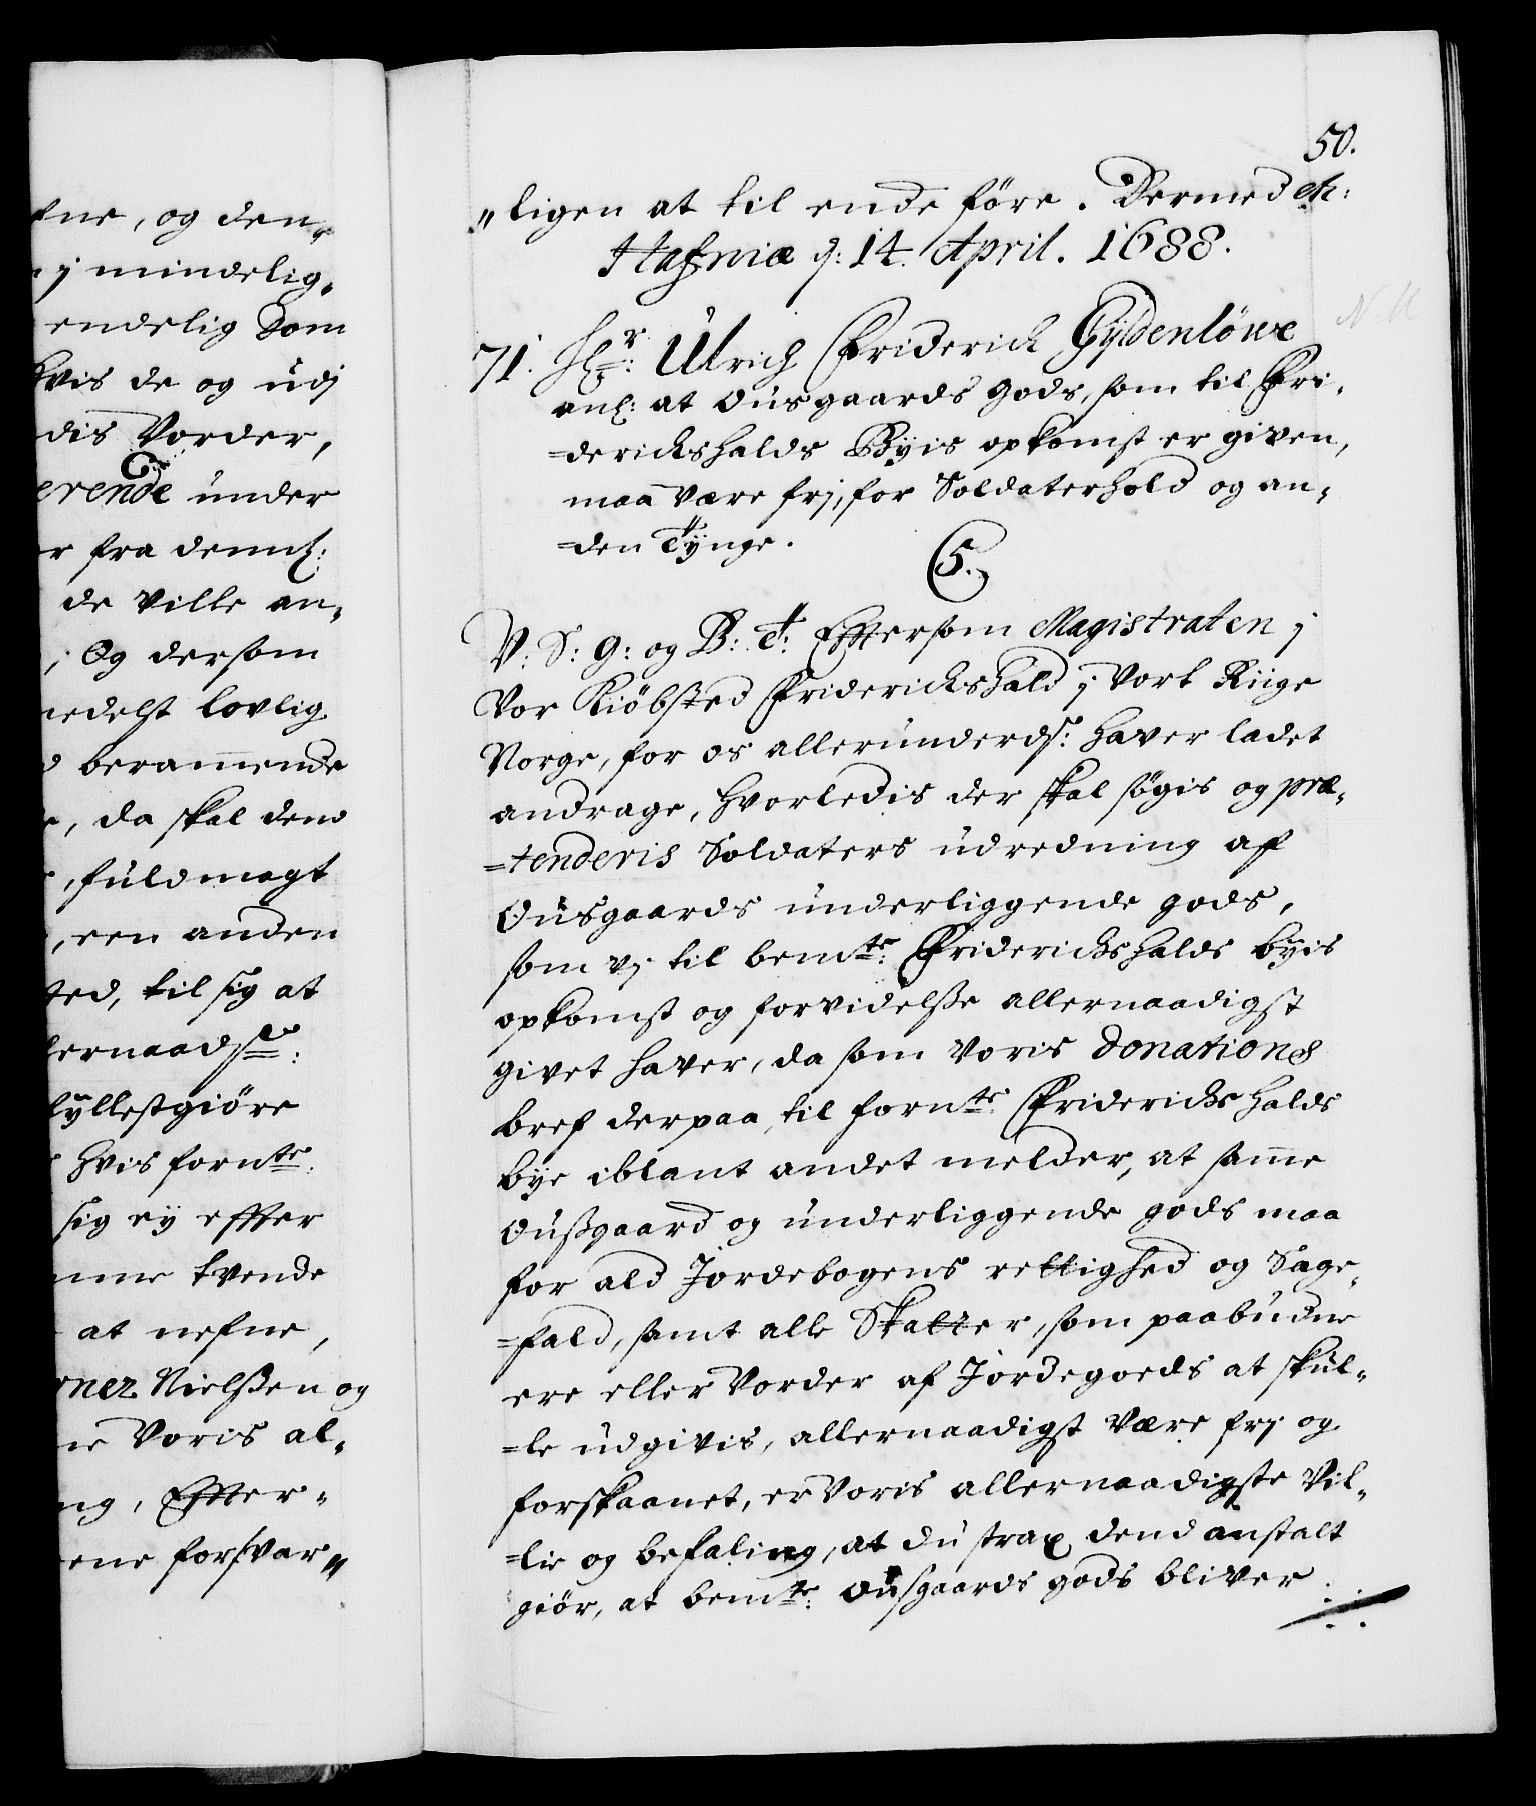 fne, og den„
j mindelig„
endelig Dom
hvis de og udj
dis Vorder,
erende under
r fra denne:
de ville an„
; Og dersom
medelst lovlig
beramende
, da skal dend
, fuldmagt
, een anden
ted, til sig at
lernaadste:
fyllestgiöre
hvis fornte:
sig ey effter
mme tvende
at nefne,
Nielßen og
ne Voris al„
ng, Effter„
ene forsvar„
50.
„ligen at til ende före. Dermed etc:
Hafniæ d: 14. April. 1688.
71. Hr: Ulrich Friderich Gyldenlöwe
anl: at Ousgaards gods, som til Fri„
=derichshalds Byis opkomst er given,
maa være frj, for Soldaterhold og an„
=den Tynge.
5.
V: S: G: og B: T: Efftersom Magistraten j
Vor Kiöbsted Friderichshald j vort Riige
Norge, for os allerunderds: haver ladet
andrage, hvorledis der skal sögis og præ„
=tenderis Soldaters udredning af
Ousgaards underliggende gods,
som vj til bemte: Friderichshalds byis
opkomst og forvidelße allernaadigst
givet haver, da som Voris Donations
bref derpaa, til fornte Friderichshalds
bye iblant andet melder, at same
Oußgaard og underliggende gods maa
for ald Jordebogens rettighed og Sage„
=fald, samt alle Skatter, som paabudne
ere eller Vorder af Jordegoeds at skul„
=le udgivis, allernaadigst være frj og
forskaanet, er Voris allernaadigste Vil„
=lie og befaling, at du strax dend anstalt
giör, at bemte: Ousgaards gods bliver